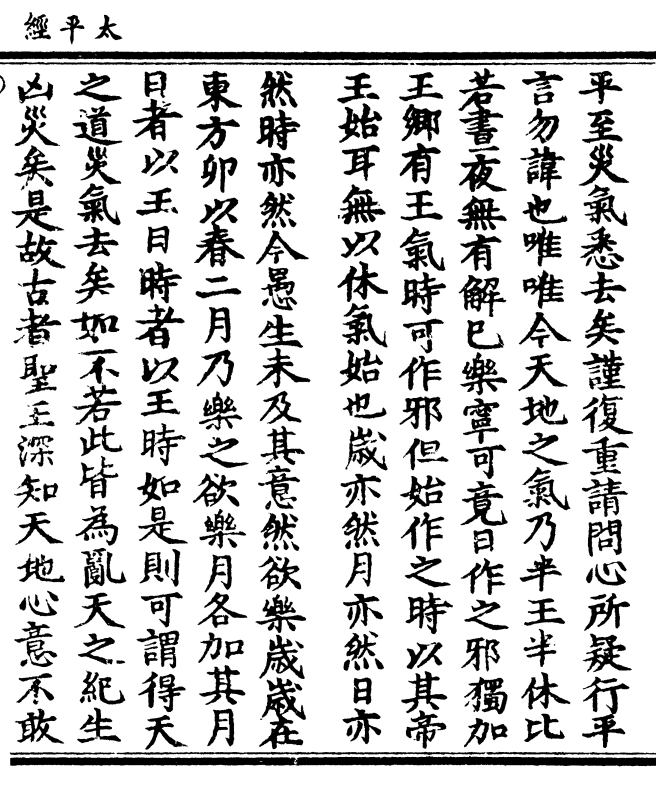 太平經
平至災氣悉去矣謹復重請問心所疑行平
言勿諱也唯唯今天地之氣乃半王半休比
若晝夜無有解已樂寧可竟日作之邪獨加
王鄉有王氣時可作邪但始作之時以其帝
王始耳無以休氣始也歲亦然月亦然日亦
然時亦然今愚生未及其意然欲樂歲歲在
東方卯以春二月乃樂之欲樂月各加其月
日者以王日時者以王時如是則可謂得天
之道災氣去矣如不若此皆為亂天之紀生
凶災矣是故古者聖王深知天地心意不敢